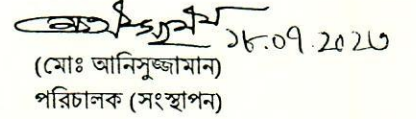 ১৮.০৭.২০২৩
(মোঃ আনিসুজ্জামান)
পরিচালক (সংস্থাপন)